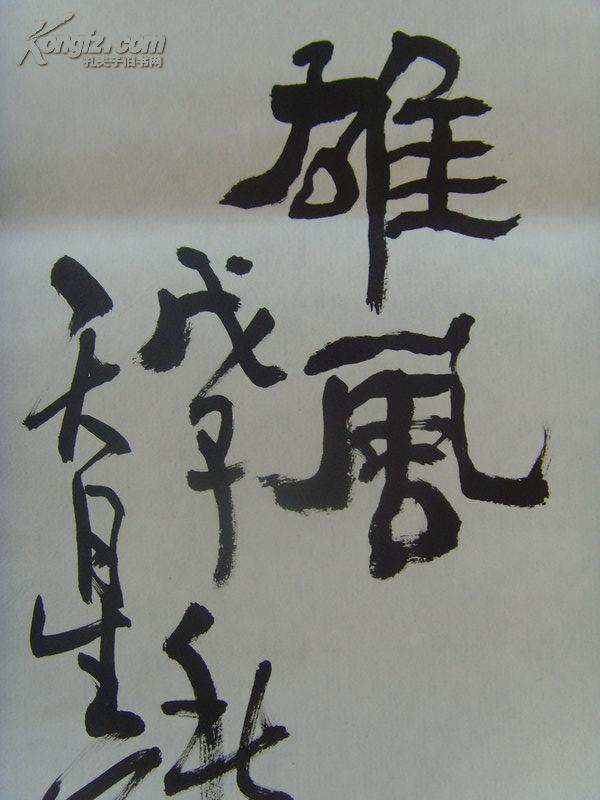 Kongfz.com
孔夫子旧书网
雄風
戊子秋
天星